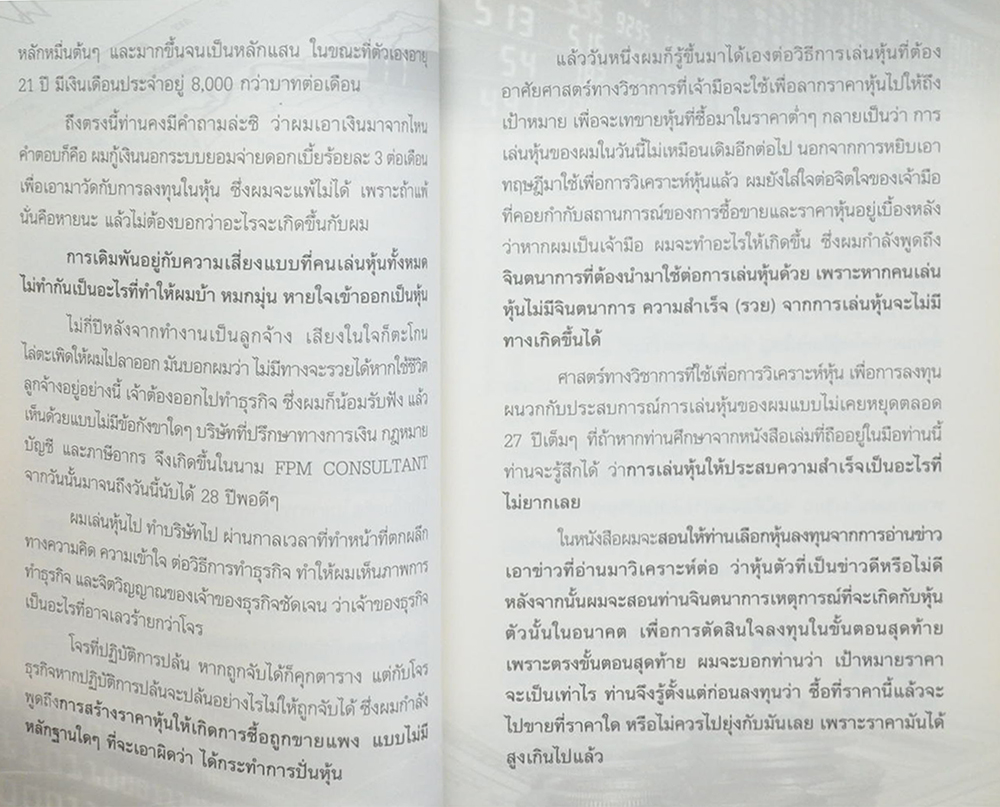 หลักหมื่นต้นๆ และมากขึ้นจนเป็นหลักแสน ในขณะที่ตัวเองอายุ
21 ปี มีเงินเดือนประจำอยู่ 8,000 กว่าบาทต่อเดือน
ถึงตรงนี้ท่านคงมีคำถามล่ะซิ ว่าผมเอาเงินมาจากไหน
คำตอบก็คือ ผมกู้เงินนอกระบบยอมจ่ายดอกเบี้ยร้อยละ 3 ต่อเดือน
เพื่อเอามาวัดกับการลงทุนในหุ้น ซึ่งผมจะแพ้ไม่ได้ เพราะถ้าแพ้
นั่นคือหายนะ แล้วไม่ต้องบอกว่าอะไรจะเกิดขึ้นกับผม
การเดิมพันอยู่กับความเสี่ยงแบบที่คนเล่นหุ้นทั้งหมด
ไม่ทำกันเป็นอะไรที่ทำให้ผมบ้า หมกมุ่น หายใจเข้าออกเป็นหุ้น
ไม่กี่ปีหลังจากทำงานเป็นลูกจ้าง เสียงในใจก็ตะโกน
ไล่ตะเพิดให้ผมไปลาออก มันบอกผมว่า ไม่มีทางจะรวยได้หากใช้ชีวิต
ลูกจ้างอยู่อย่างนี้ เจ้าต้องออกไปทำธุรกิจ ซึ่งผมก็น้อมรับฟัง แล้ว
เห็นด้วยแบบไม่มีข้อกังขาใดๆ บริษัทที่ปรึกษาทางการเงิน กฎหมาย
บัญชี และภาษีอากร จึงเกิดขึ้นในนาม FPM CONSULTANT
จากวันนั้นมาจนถึงวันนี้นับได้ 28 ปีพอดีๆ
ผมเล่นหุ้นไป ทำบริษัทไป ผ่านกาลเวลาที่ทำหน้าที่ตกผลึก
ทางความคิด ความเข้าใจ ต่อวิธีการทำธุรกิจ ทำให้ผมเห็นภาพการ
ทำธุรกิจ และจิตวิญญาณของเจ้าของธุรกิจชัดเจน ว่าเจ้าของธุรกิจ
เป็นอะไรที่อาจเลวร้ายกว่าโจร
โจรที่ปฏิบัติการปล้น หากถูกจับได้ก็คุกตาราง แต่กับโจร
ธุรกิจหากปฏิบัติการปล้นจะปล้นอย่างไรไม่ให้ถูกจับได้ ซึ่งผมกำลัง
พูดถึงการสร้างราคาหุ้นให้เกิดการซื้อถูกขายแพง แบบไม่มี
หลักฐานใดๆ ที่จะเอาผิดว่า ได้กระทำการปั่นหุ้น
แล้ววันหนึ่งผมก็รู้ขึ้นมาได้เองต่อวิธีการเล่นหุ้นที่ต้อง
อาศัยศาสตร์ทางวิชาการที่เจ้ามือจะใช้เพื่อลากราคาหุ้นไปให้ถึง
เป้าหมาย เพื่อจะเทขายหุ้นที่ซื้อมาในราคาต่ำๆ กลายเป็นว่า การ
เล่นหุ้นของผมในวันนี้ไม่เหมือนเดิมอีกต่อไป นอกจากการหยิบเอา
ทฤษฎีมาใช้เพื่อการวิเคราะห์หุ้นแล้ว ผมยังใส่ใจต่อจิตใจของเจ้ามือ
ที่คอยกำกับสถานการณ์ของการซื้อขายและราคาหุ้นอยู่เบื้องหลัง
ว่าหากผมเป็นเจ้ามือ ผมจะทำอะไรให้เกิดขึ้น ซึ่งผมกำลังพูดถึง
จินตนาการที่ต้องนำมาใช้ต่อการเล่นหุ้นด้วย เพราะหากคนเล่น
หุ้นไม่มีจินตนาการ ความสำเร็จ (รวย) จากการเล่นหุ้นจะไม่มี
ทางเกิดขึ้นได้
ศาสตร์ทางวิชาการที่ใช้เพื่อการวิเคราะห์หุ้น เพื่อการลงทุน
ผนวกกับประสบการณ์การเล่นหุ้นของผมแบบไม่เคยหยุดตลอด
27 ปีเต็มๆ ที่ถ้าหากท่านศึกษาจากหนังสือเล่มที่ถืออยู่ในมือท่านนี้
ท่านจะรู้สึกได้ ว่าการเล่นหุ้นให้ประสบความสำเร็จเป็นอะไรที่
ไม่ยากเลย
ในหนังสือผมจะสอนให้ท่านเลือกหุ้นลงทุนจากการอ่านข่าว
เอาข่าวที่อ่านมาวิเคราะห์ต่อ ว่าหุ้นตัวที่เป็นข่าวดีหรือไม่ดี
หลังจากนั้นผมจะสอนท่านจินตนาการเหตุการณ์ที่จะเกิดกับหุ้น
ตัวนั้นในอนาคต เพื่อการตัดสินใจลงทุนในขั้นตอนสุดท้าย
เพราะตรงขั้นตอนสุดท้าย ผมจะบอกท่านว่า เป้าหมายราคา
จะเป็นเท่าไร ท่านจึงรู้ตั้งแต่ก่อนลงทุนว่า ซื้อที่ราคานี้แล้วจะ
ไปขายที่ราคาใด หรือไม่ควรไปยุ่งกับมันเลย เพราะราคามันได้
สูงเกินไปแล้ว